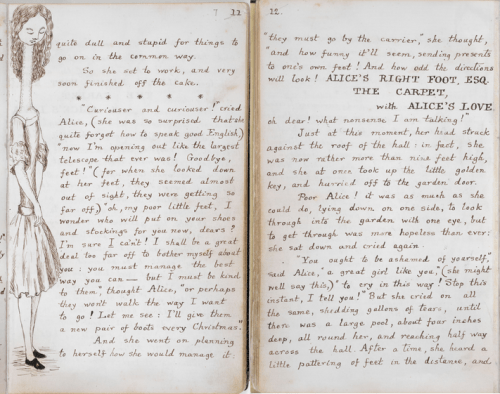 11
quite dull and stupid for things to
go on in the common way.
So she set to work, and very
soon finished off the cake.
* * * * *
"Curiouser and curiouser!" cried
Alice, (she was so surprised that she
quite forgot how to speak good English,)
"now I'm opening out like the largest
telescope that ever was! Goodbye,
feet!" (for when she looked down
at her feet, they seemed almost
out of sight, they were getting so
far off,) "oh, my poor little feet, I
wonder who will put on your shoes
and stockings for you now, dears?
I'm sure I can't! I shall be a great
deal too far off to bother myself about
you: you must manage the best
way you can — but I must be kind
to them", thought Alice, "or perhaps
they won't walk the way I want
to go! Let me see: I'll give them
a new pair of boots every Christmas."
And she went on planning
to herself how she would manage it:
12.
"they must go by the carrier," she thought,
"and how funny it'll seem, sending presents
to one's own feet! And how odd the directions
will look! ALICE'S RIGHT FOOT, ESQ.
THE CARPET,
with ALICE'S LOVE
oh dear! what nonsense I am talking!"
Just at this moment, her head struck
against the roof of the hall: in fact, she
was now rather more than nine feet high,
and she at once took up the little golden
key, and hurried off to the garden door.
Poor Alice! it was as much as she
could do, lying down on one side, to look
through into the garden with one eye, but
to get through was more hopeless than ever:
she sat down and cried again.
"You ought to be ashamed of yourself,"
said Alice, "a great girl like you," (she might
well say this,) "to cry in this way! Stop this
instant, I tell you!" But she cried on all
the same, shedding gallons of tears, until
there was a large pool, about four inches
deep, all round her, and reaching half way
across the hall. After a time, she heard a
little pattering of feet in the distance, and